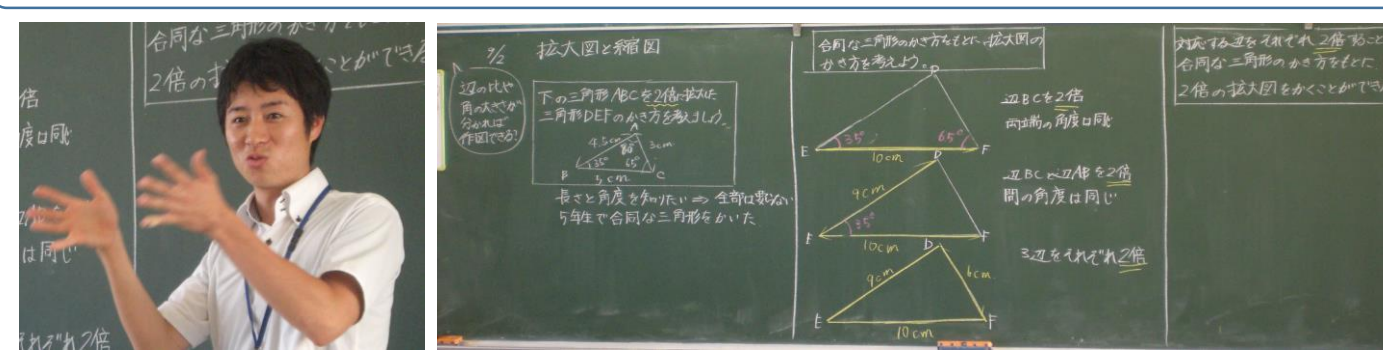 合同な三角形のかき方をもとに
2倍の拡 ことができる
倍
度は同じ
は同じ
それぞれ2倍
9/2
拡大図と縮図
辺の比や
角の大きさが
分かれば
作図できる?
下の三角形ABCを2倍に拡大した
三角形DEFのかき方を考えましょう。
A
4.5cm
80°
3cm
35°
65°
B
5cm
C
長さと角度を知りたい⇒全部は要らない
5年生で合同な三角形をかいた
合同な三角形のかき方をもとに、拡大図の
かき方を考えよう。
D
35°
65°
E
10cm
F
辺BCを2倍
両端の角度は同じ
D
9cm
35°
E
10cm
F
辺BCと辺ABを2倍
間の角度は同じ
D
9cm
6cm
E
10cm
F
3辺をそれぞれ2倍
対応する辺をそれぞれ2倍すること
合同な三角形のかき方をもとに
2倍の拡大図をかくことができ